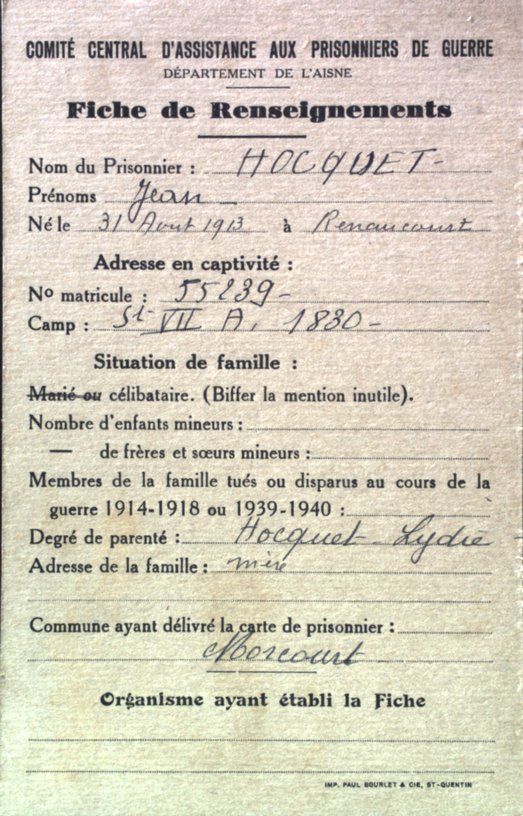 COMITÉ CENTRAL D'ASSISTANCE AUX PRISONNIERS DE GUERRE
DÉPARTEMENT DE L'AISNE
Fiche de Renseignements
Nom du Prisonnier : HOCQUET-
Prénoms Jean -
Né le 31 Aout 1913 à Renaucourt
Adresse en captivité :
No matricule : 55239-
Camp : St VII A. 1830-
Situation de famille :
Marié ou célibataire. (Biffer la mention inutile).
Nombre d'enfants mineurs :
— de frères et sœurs mineurs :
Membres de la famille tués ou disparus au cours de la
guerre 1914-1918 ou 1939-1940 :
Degré de parenté : Hocquet - Lydie -
Adresse de la famille : mère
Commune ayant délivré la carte de prisonnier :
Morcourt
Organisme ayant établi la Fiche
IMP. PAUL BOURLET & CIE, ST-QUENTIN